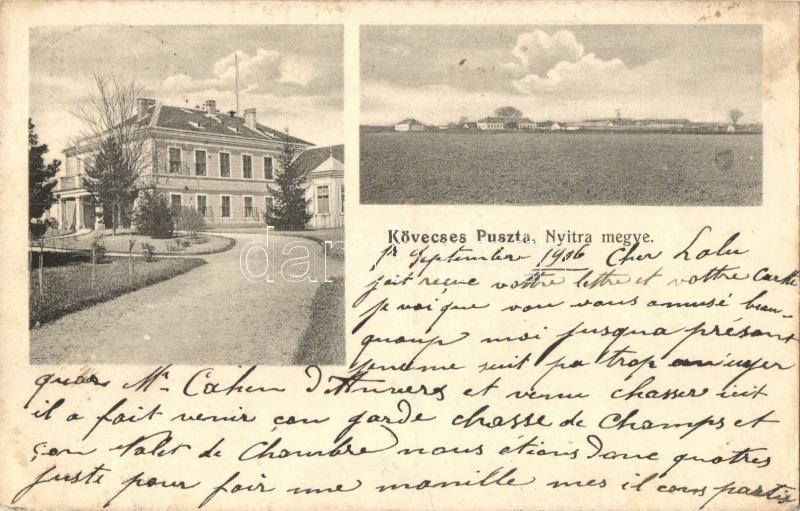 Kövecses Puszta, Nyitra megye.
1r September 1906 Cher Lolu
jait reçue vottre lettre et vottre carte
je voi que vou vous amusé beau-
quoup moi jusqua présent
jeneme suit pa trop anuyer
quar Mr Cahen d'Anvers et venu chasser icit
il a fait venir çon garde chasse de Champs et
çon Valet de Chambre nous etions donc quatres
juste pour fair une manille mes il sons partis